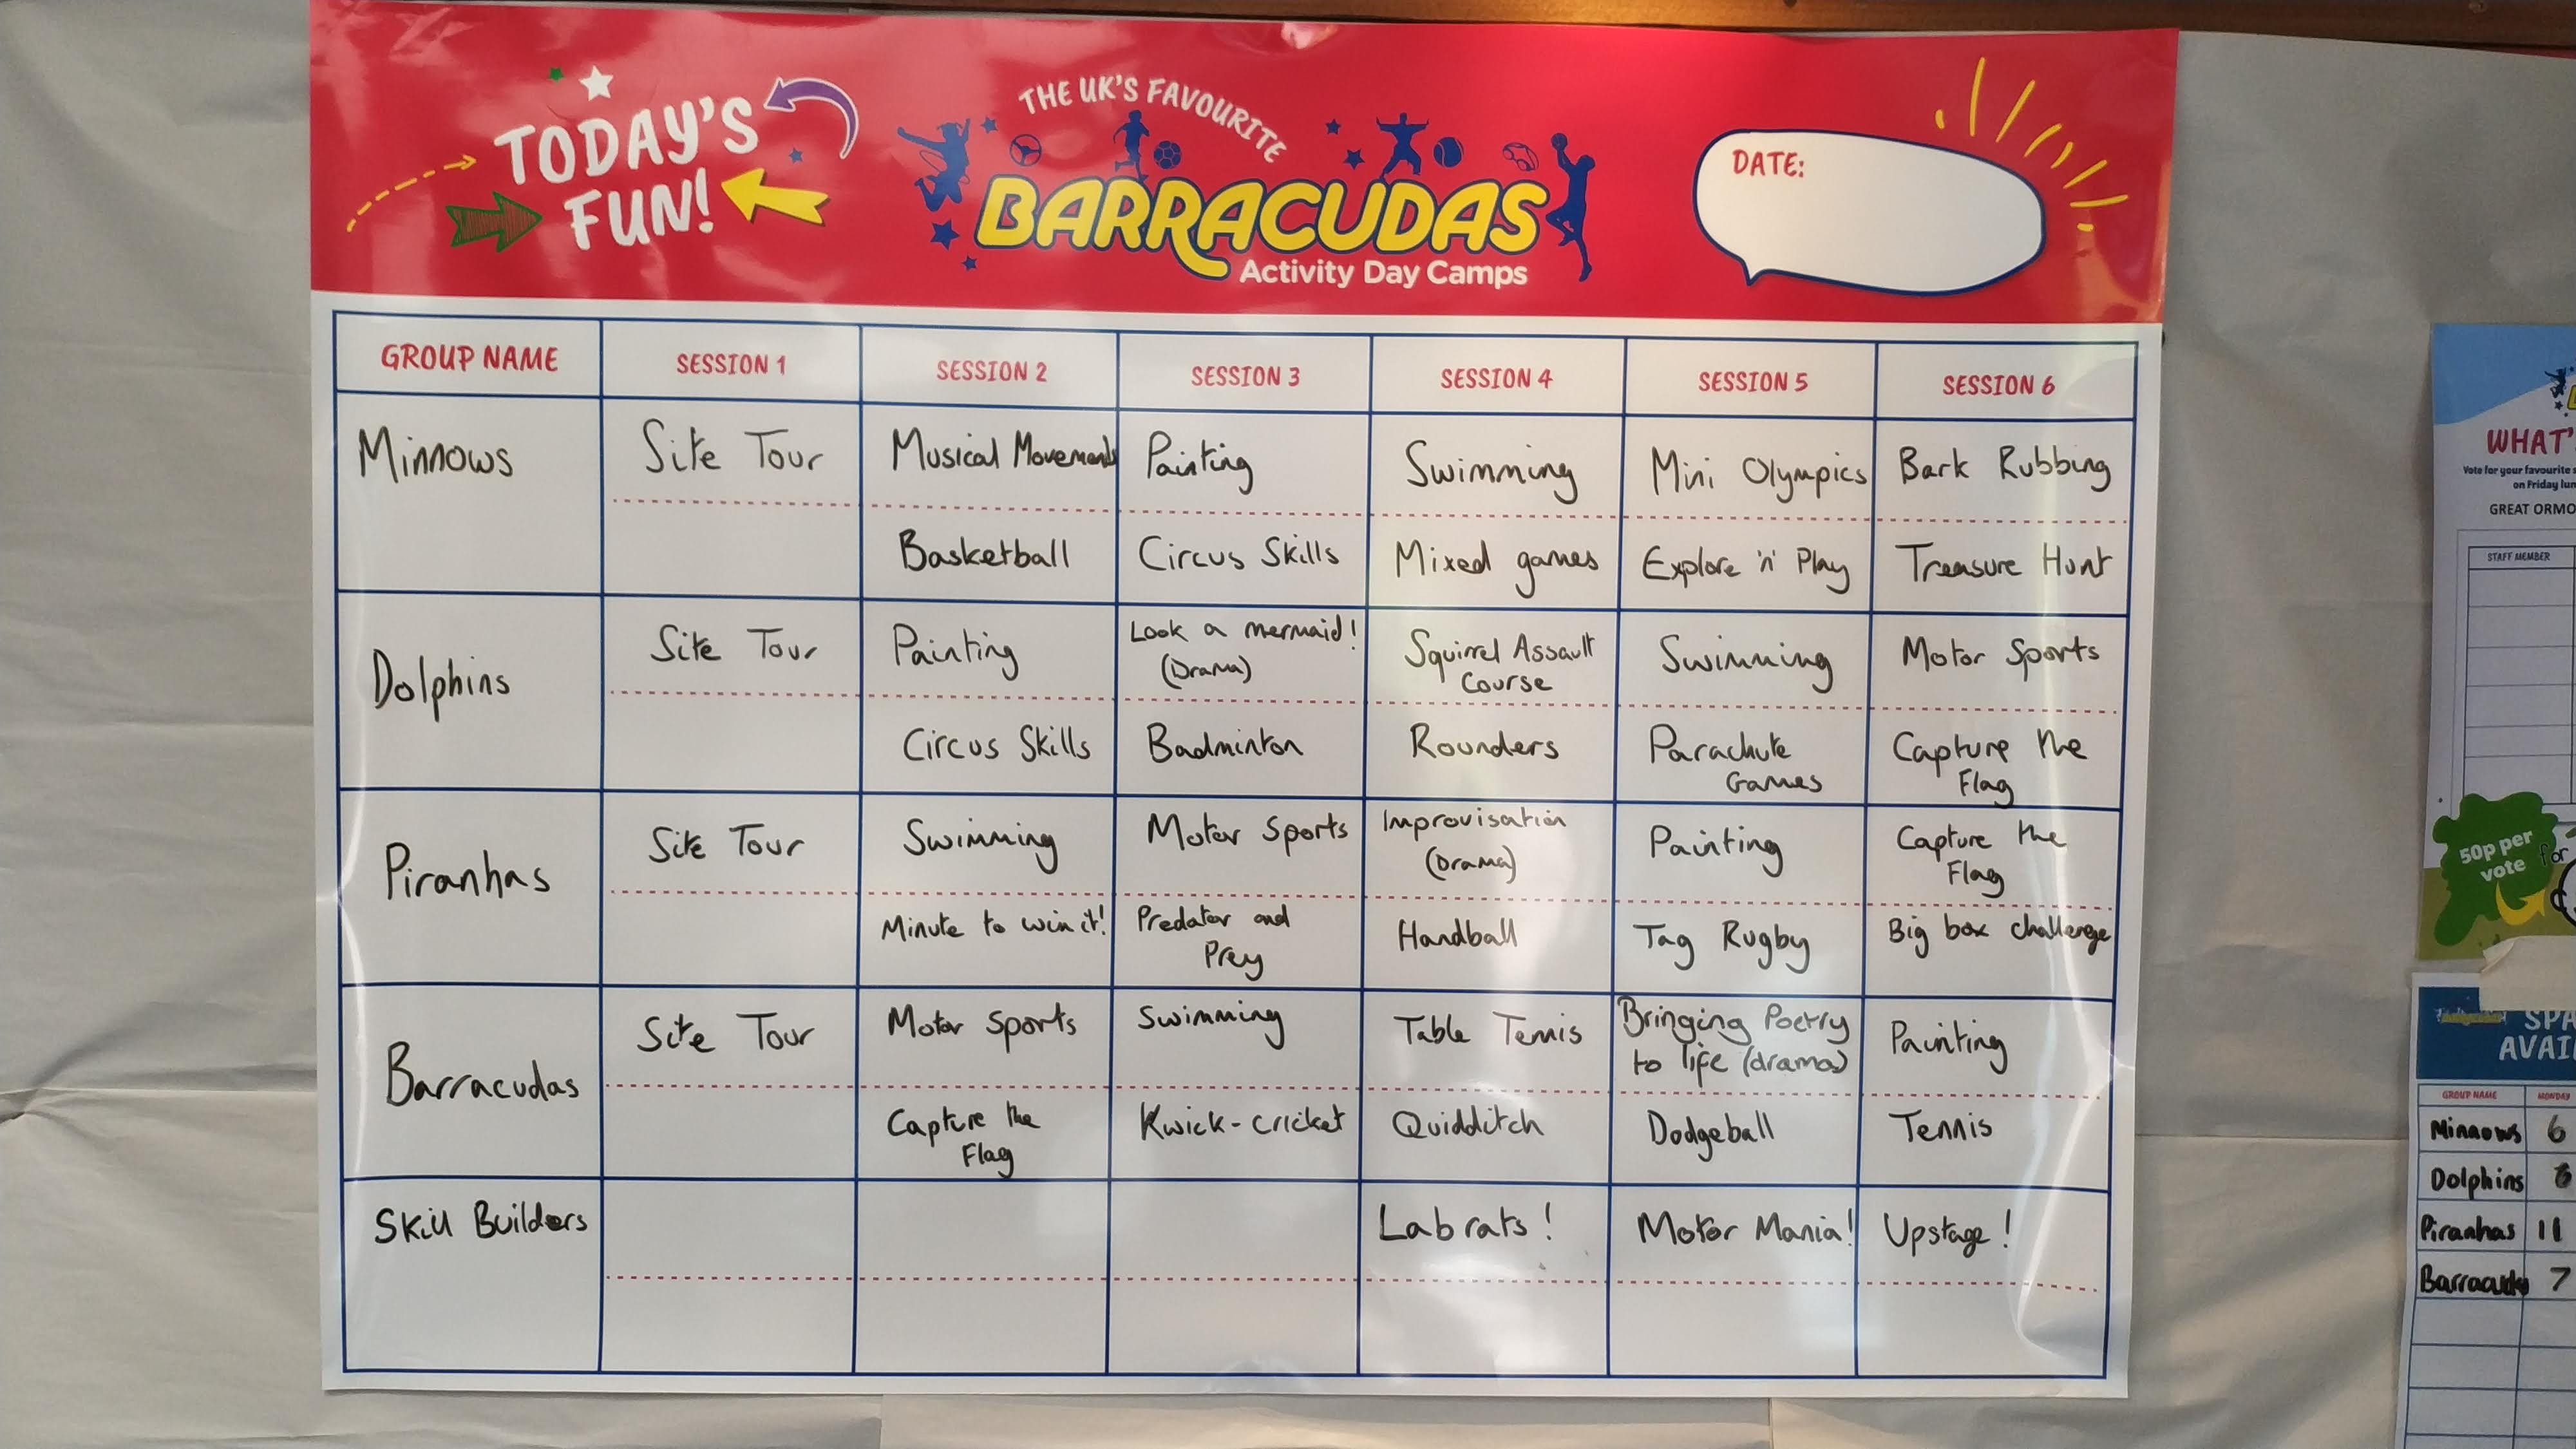 TODAY'S
FUN!
THE UK'S FAVOURITE
BARRACUDAS
Activity Day Camps
DATE:
GROUP NAME SESSION 1 SESSION 2 SESSION 3 SESSION 4 SESSION 5 SESSION 6
Minnows Site Tour Musical Movements Painting Swimming Mini Olympics Bark Rubbing
Basketball Circus Skills Mixed games Explore 'n' Play Treasure Hunt
Dolphins Site Tour Painting Look a mermaid! Squirrel Assault Swimming Motor Sports
(Drama) Course
Circus Skills Badminton Rounders Parachute Capture the
Games Flag
Piranhas Site Tour Swimming Motor Sports Improvisation Painting Capture the
(Drama) Flag
Minute to win it! Predator and Handball Tag Rugby Big box challenge
Prey
Barracudas Site Tour Motor Sports Swimming Table Tennis Bringing Poetry Painting
to life (drama)
Capture the Kwick-cricket Quidditch Dodgeball Tennis
Flag
Skill Builders Lab rats! Motor Mania! Upstage!
WHAT'
Vote for your favourite
on Friday
GREAT
STAFF MEMBER
50p per
vote
for
GROUP NAME MONDAY
Minnows 6
Dolphins
Piranhas 11
Barracudas 7